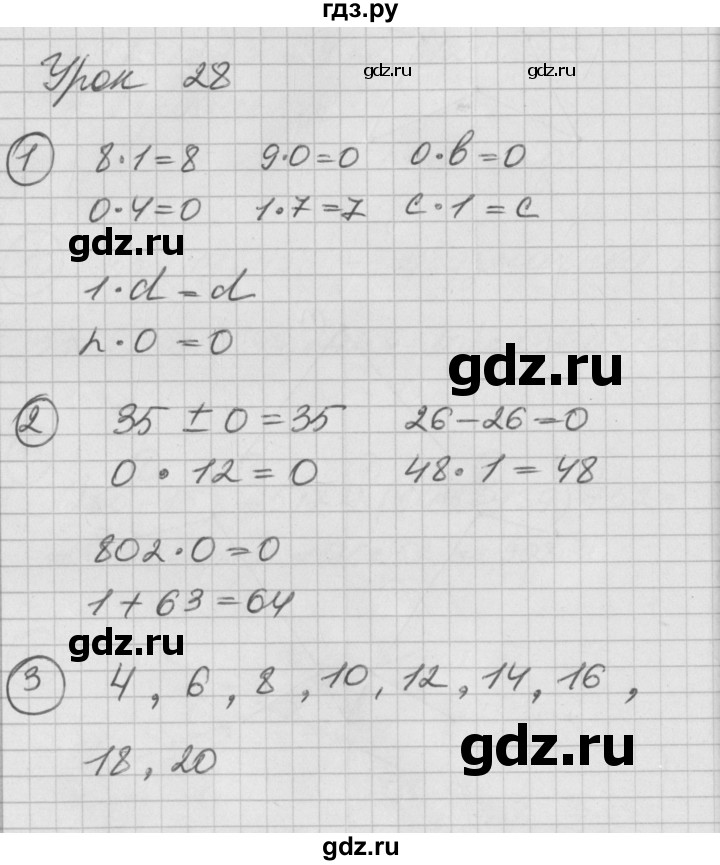 гдз.ру
Урок 28
gdz.ru gdz.ru
1 8·1=8 9·0=0 0·b=0
0·4=0 1·7=7 c·1=c
gdz.ru
1·d=d
n·0=0
gdz.ru
2 35±0=35 26-26=0
0·12=0 48·1=48
802·0=0
1+63=64
gdz.ru
3 4, 6, 8, 10, 12, 14, 16,
18, 20
gdz.ru
gdz.ru